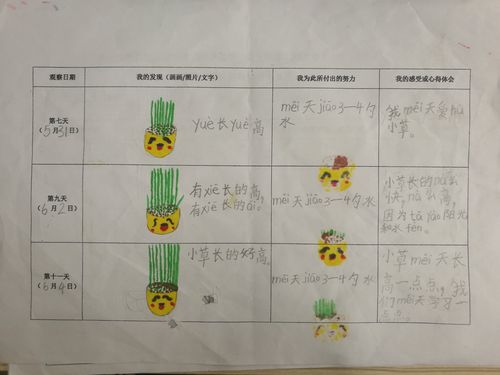 观察日期
我的发现（画画/照片/文字）
我为此所付出的努力
我的感受或心得体会
第七天
（5月31日）
yuè长yuè高
měi天jiāo3一4勺
水
我měi天爱hù
小草。
第九天
（6月2日）
有xiē长的高，
有xiē长的ǎi。
měi天jiāo3一4勺水
小草长的nà么
快，nà么高，
因为tā yào阳光
和水fèn。
第十一天
（6月4日）
小草长的好高。
měi天jiāo3一4勺水
小草měi天长
高一点点，我
们měi天学习一
点点。